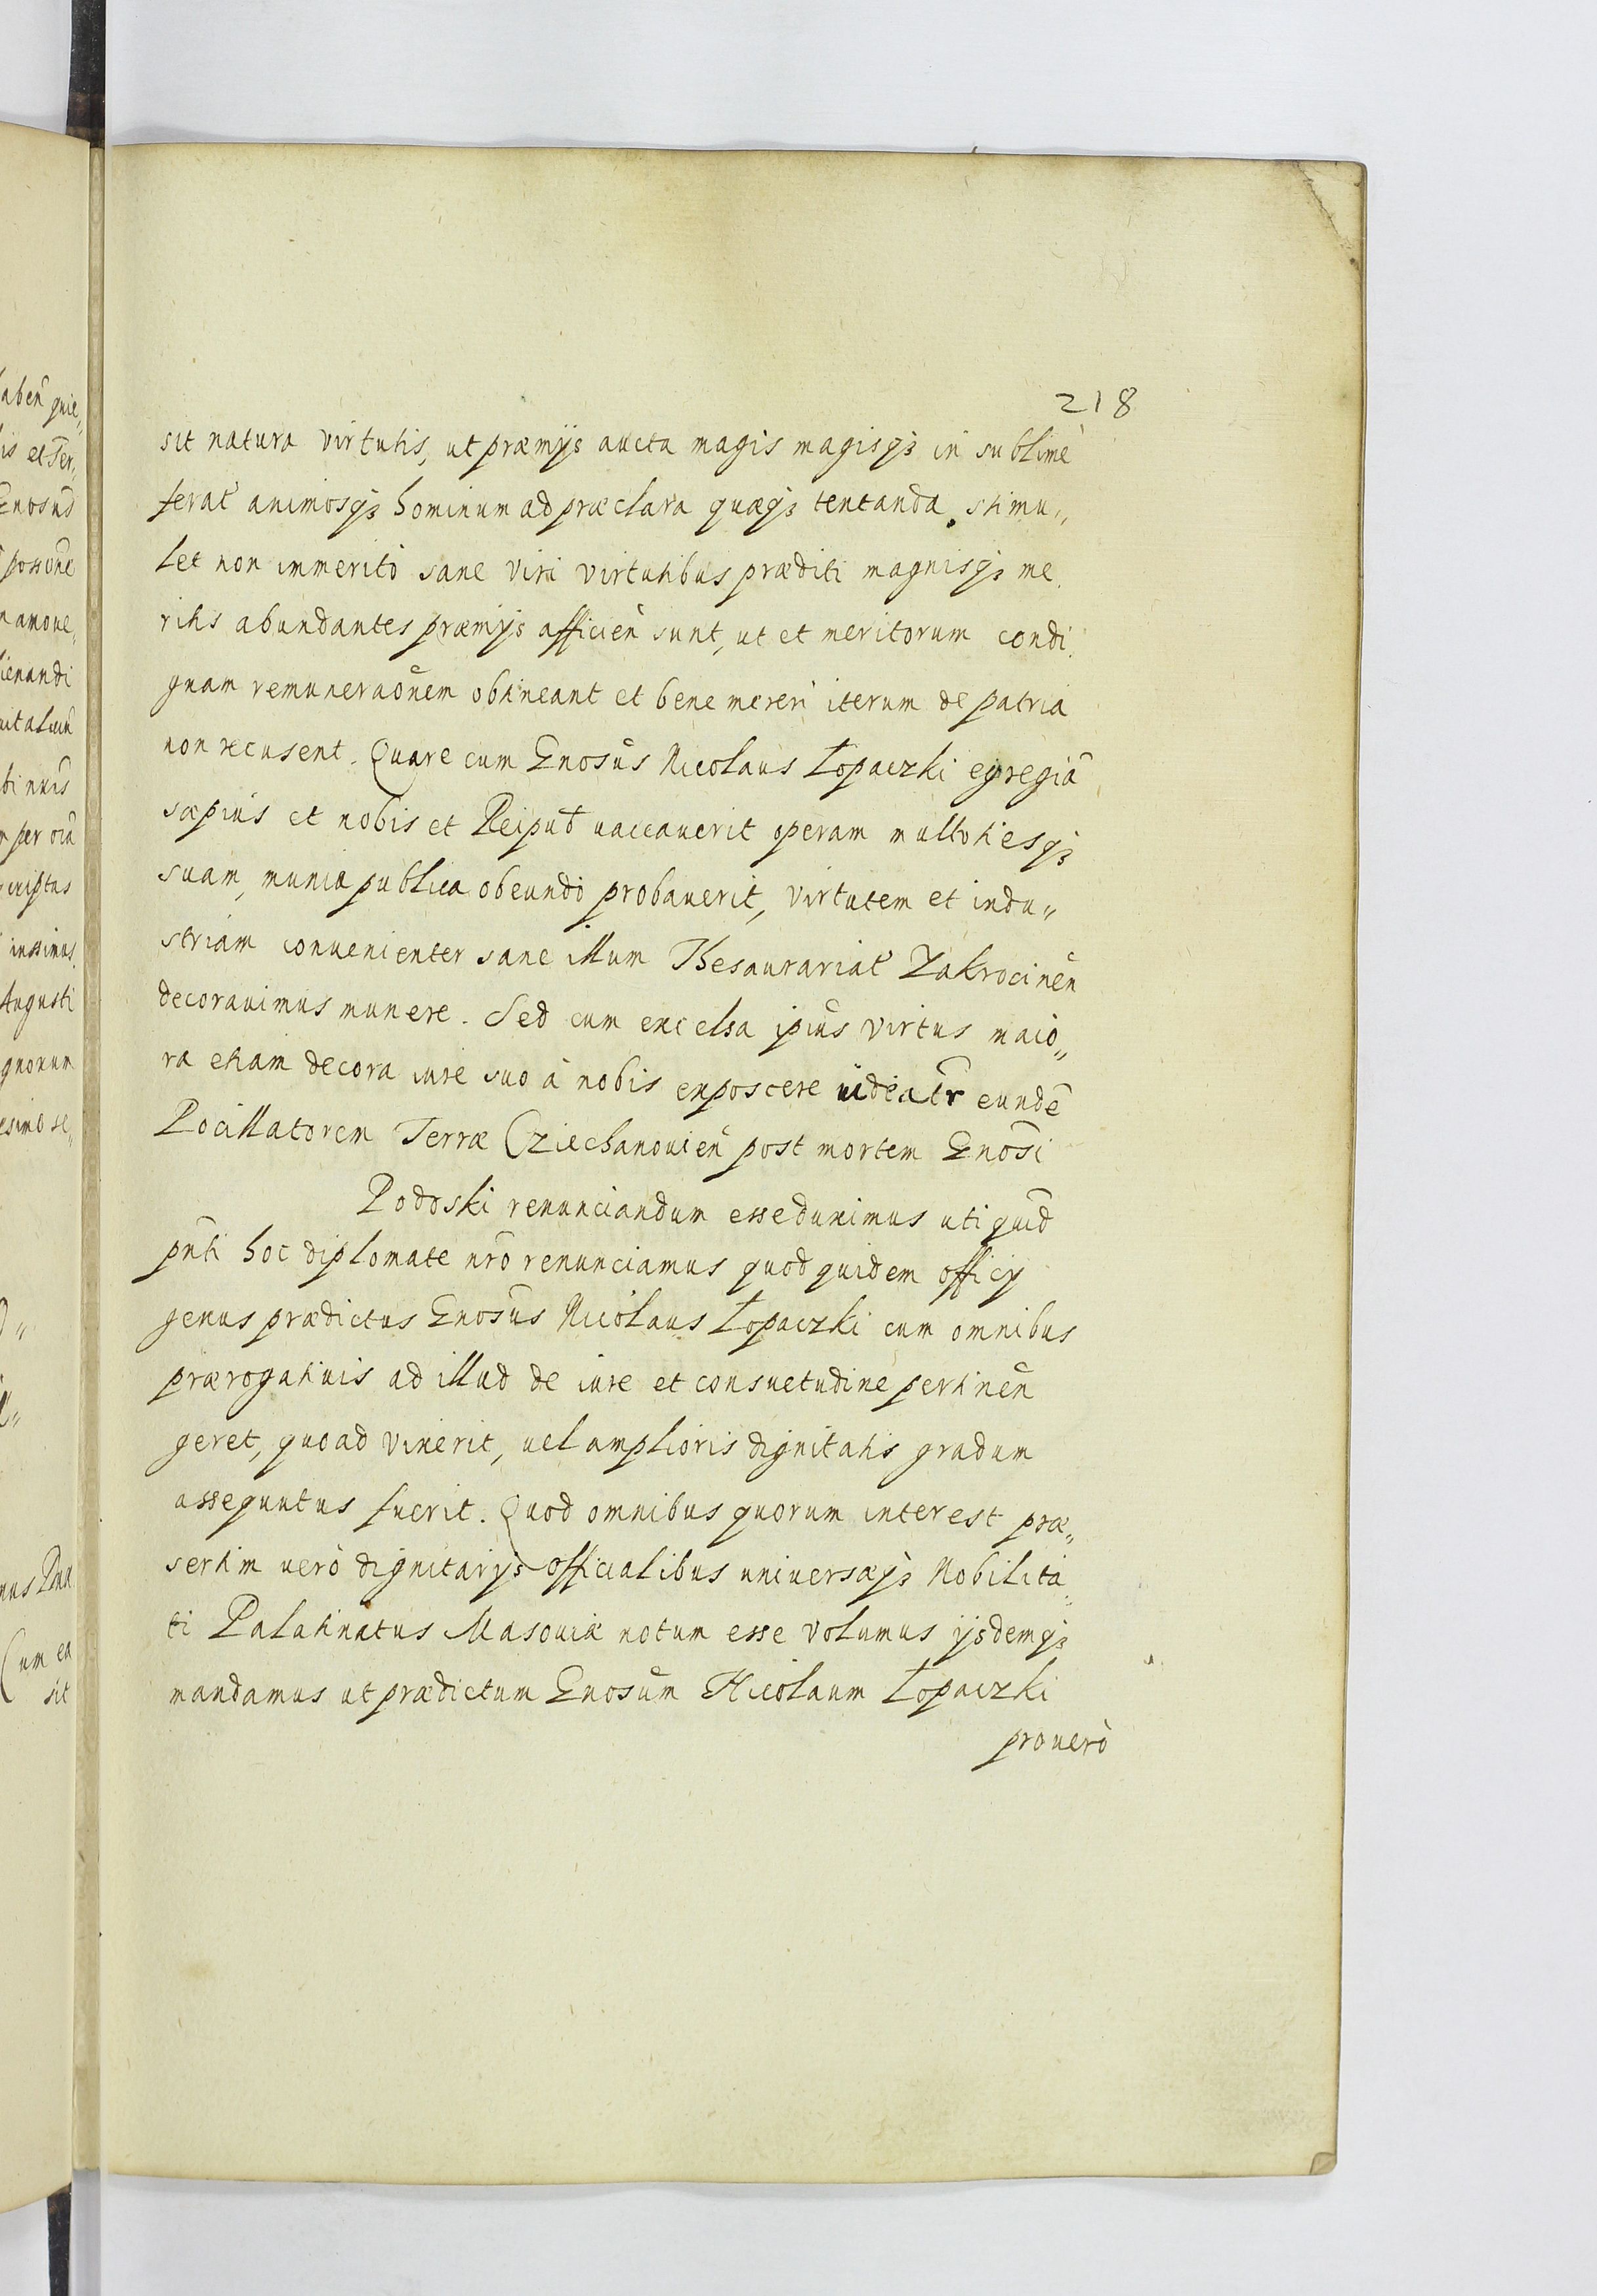 218
sit natura virtutis, ut præmijs aucta magis magisqȝ in sublimè
ferat animosqȝ hominum ad præclara quæqȝ tentanda stimu„
let non immeritò sane viri virtutibus præditi magnisqȝ me
ritis abundantes præmijs afficieñ sunt, ut et meritorum condi
gnam remuneraõnem obtineant et bene mereri iterum de patria
non recusent. Quare cum Gnosus Nicolaus Łopaczki egregiã
sæpius et nobis et Reipub̃ vaccauerit operam multotiesqȝ
suam, munia publica obeundo probauerit, virtutem et indu„
striam conuenienter sane illum Thesaurariat̃ Zakrocineñ
decorauimus munere. Sed cum excelsa ipius virtus maio„
ra etiam decora iure suo à nobis exposcere uideatr̃ eundẽ
Pocillatorem Terræ Cziechanouieñ post mortem Gnosi
Podoski renunciandum esse duximus uti quid̃
pñti hoc diplomate nr̃o renunciamus quod quidem officij
genus prædictus Gnosus Nicolaus Łopaczki cum omnibus
prærogatiuis ad illud de iure et consuetudine pertineñ
geret, quoad vixerit, uel amplioris dignitatis gradum
assequutus fuerit. Quod omnibus quorum interest præ„
sertim uerò dignitarijs officialibus uniuersæqȝ Nobilita„
ti Palatinatus Masouiæ notum esse volumus ijsdemqȝ
mandamus ut prædictum Gnosum Nicolaum Łopaczki
pro uerò